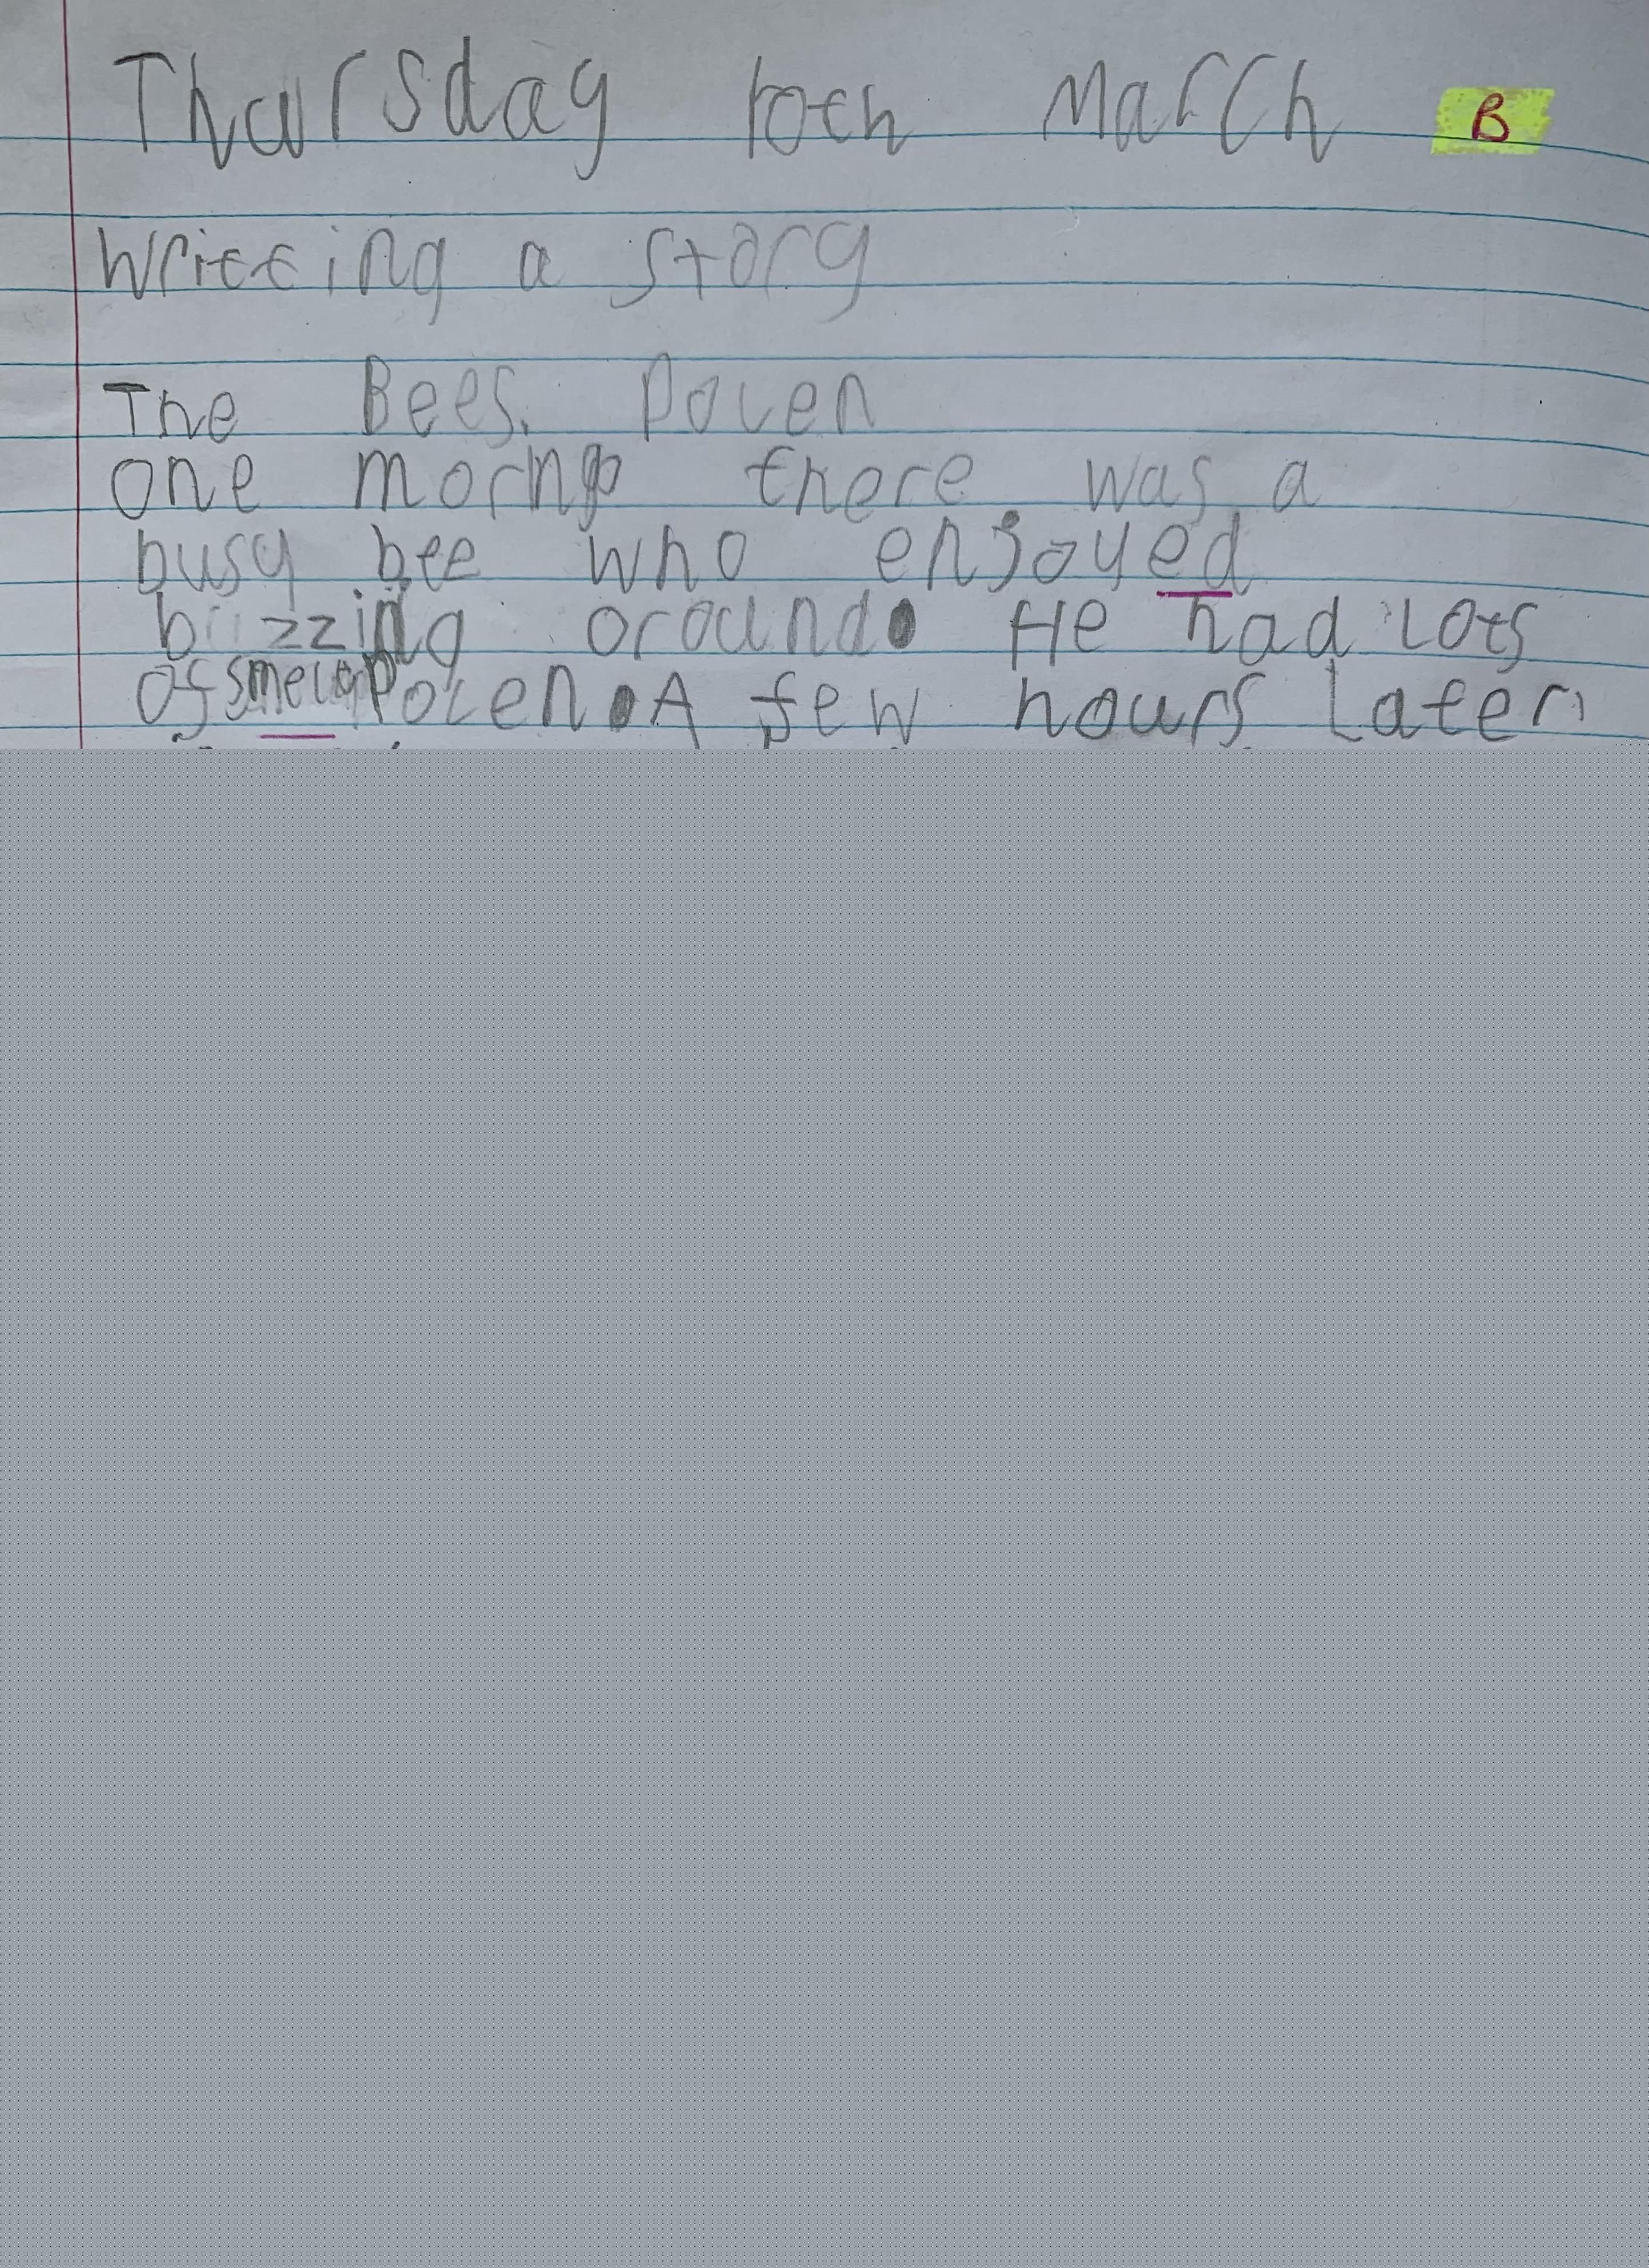 Thursday 10th March B
Writting a story
The Bees. Polen
one morng there was a
busy bee who enjoyed
buzzing oround. He had lots
of Polen. A few hours later